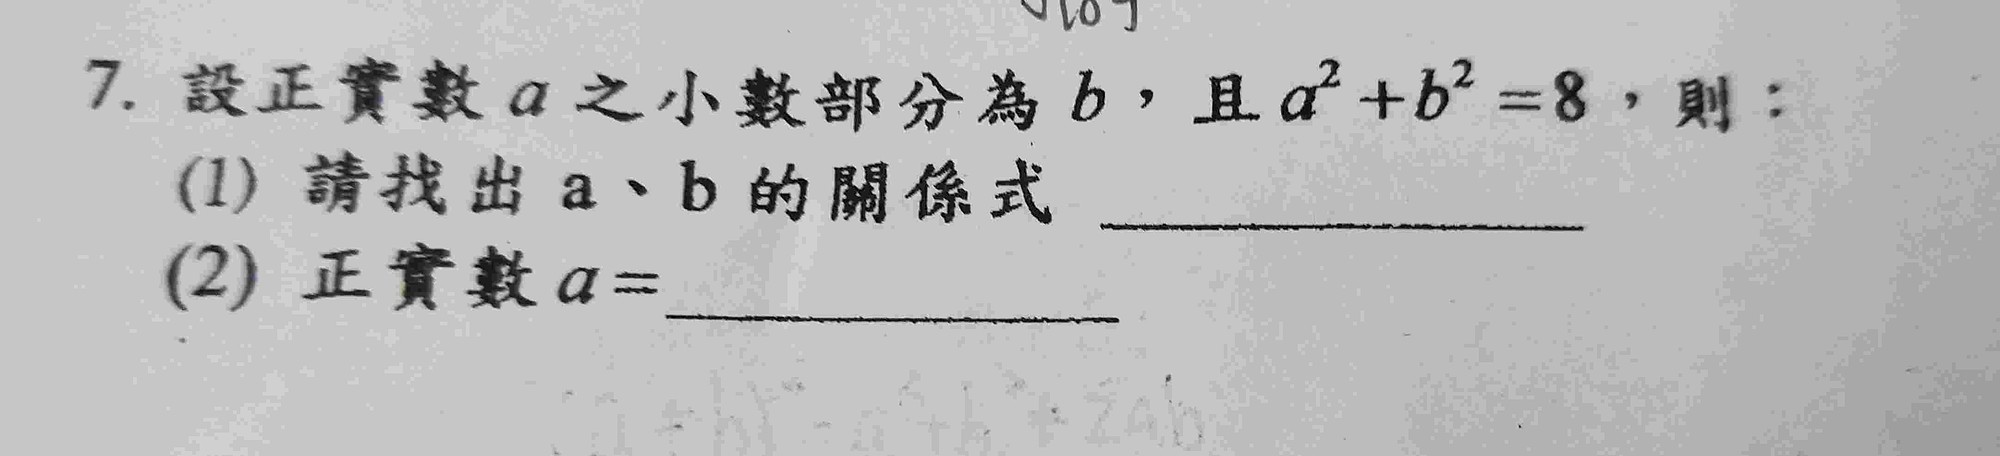 7. 設正實數 a 之小數部分為 b，且 a² + b² = 8，則：
(1) 請找出 a、b 的關係式 ____________
(2) 正實數 a = ____________